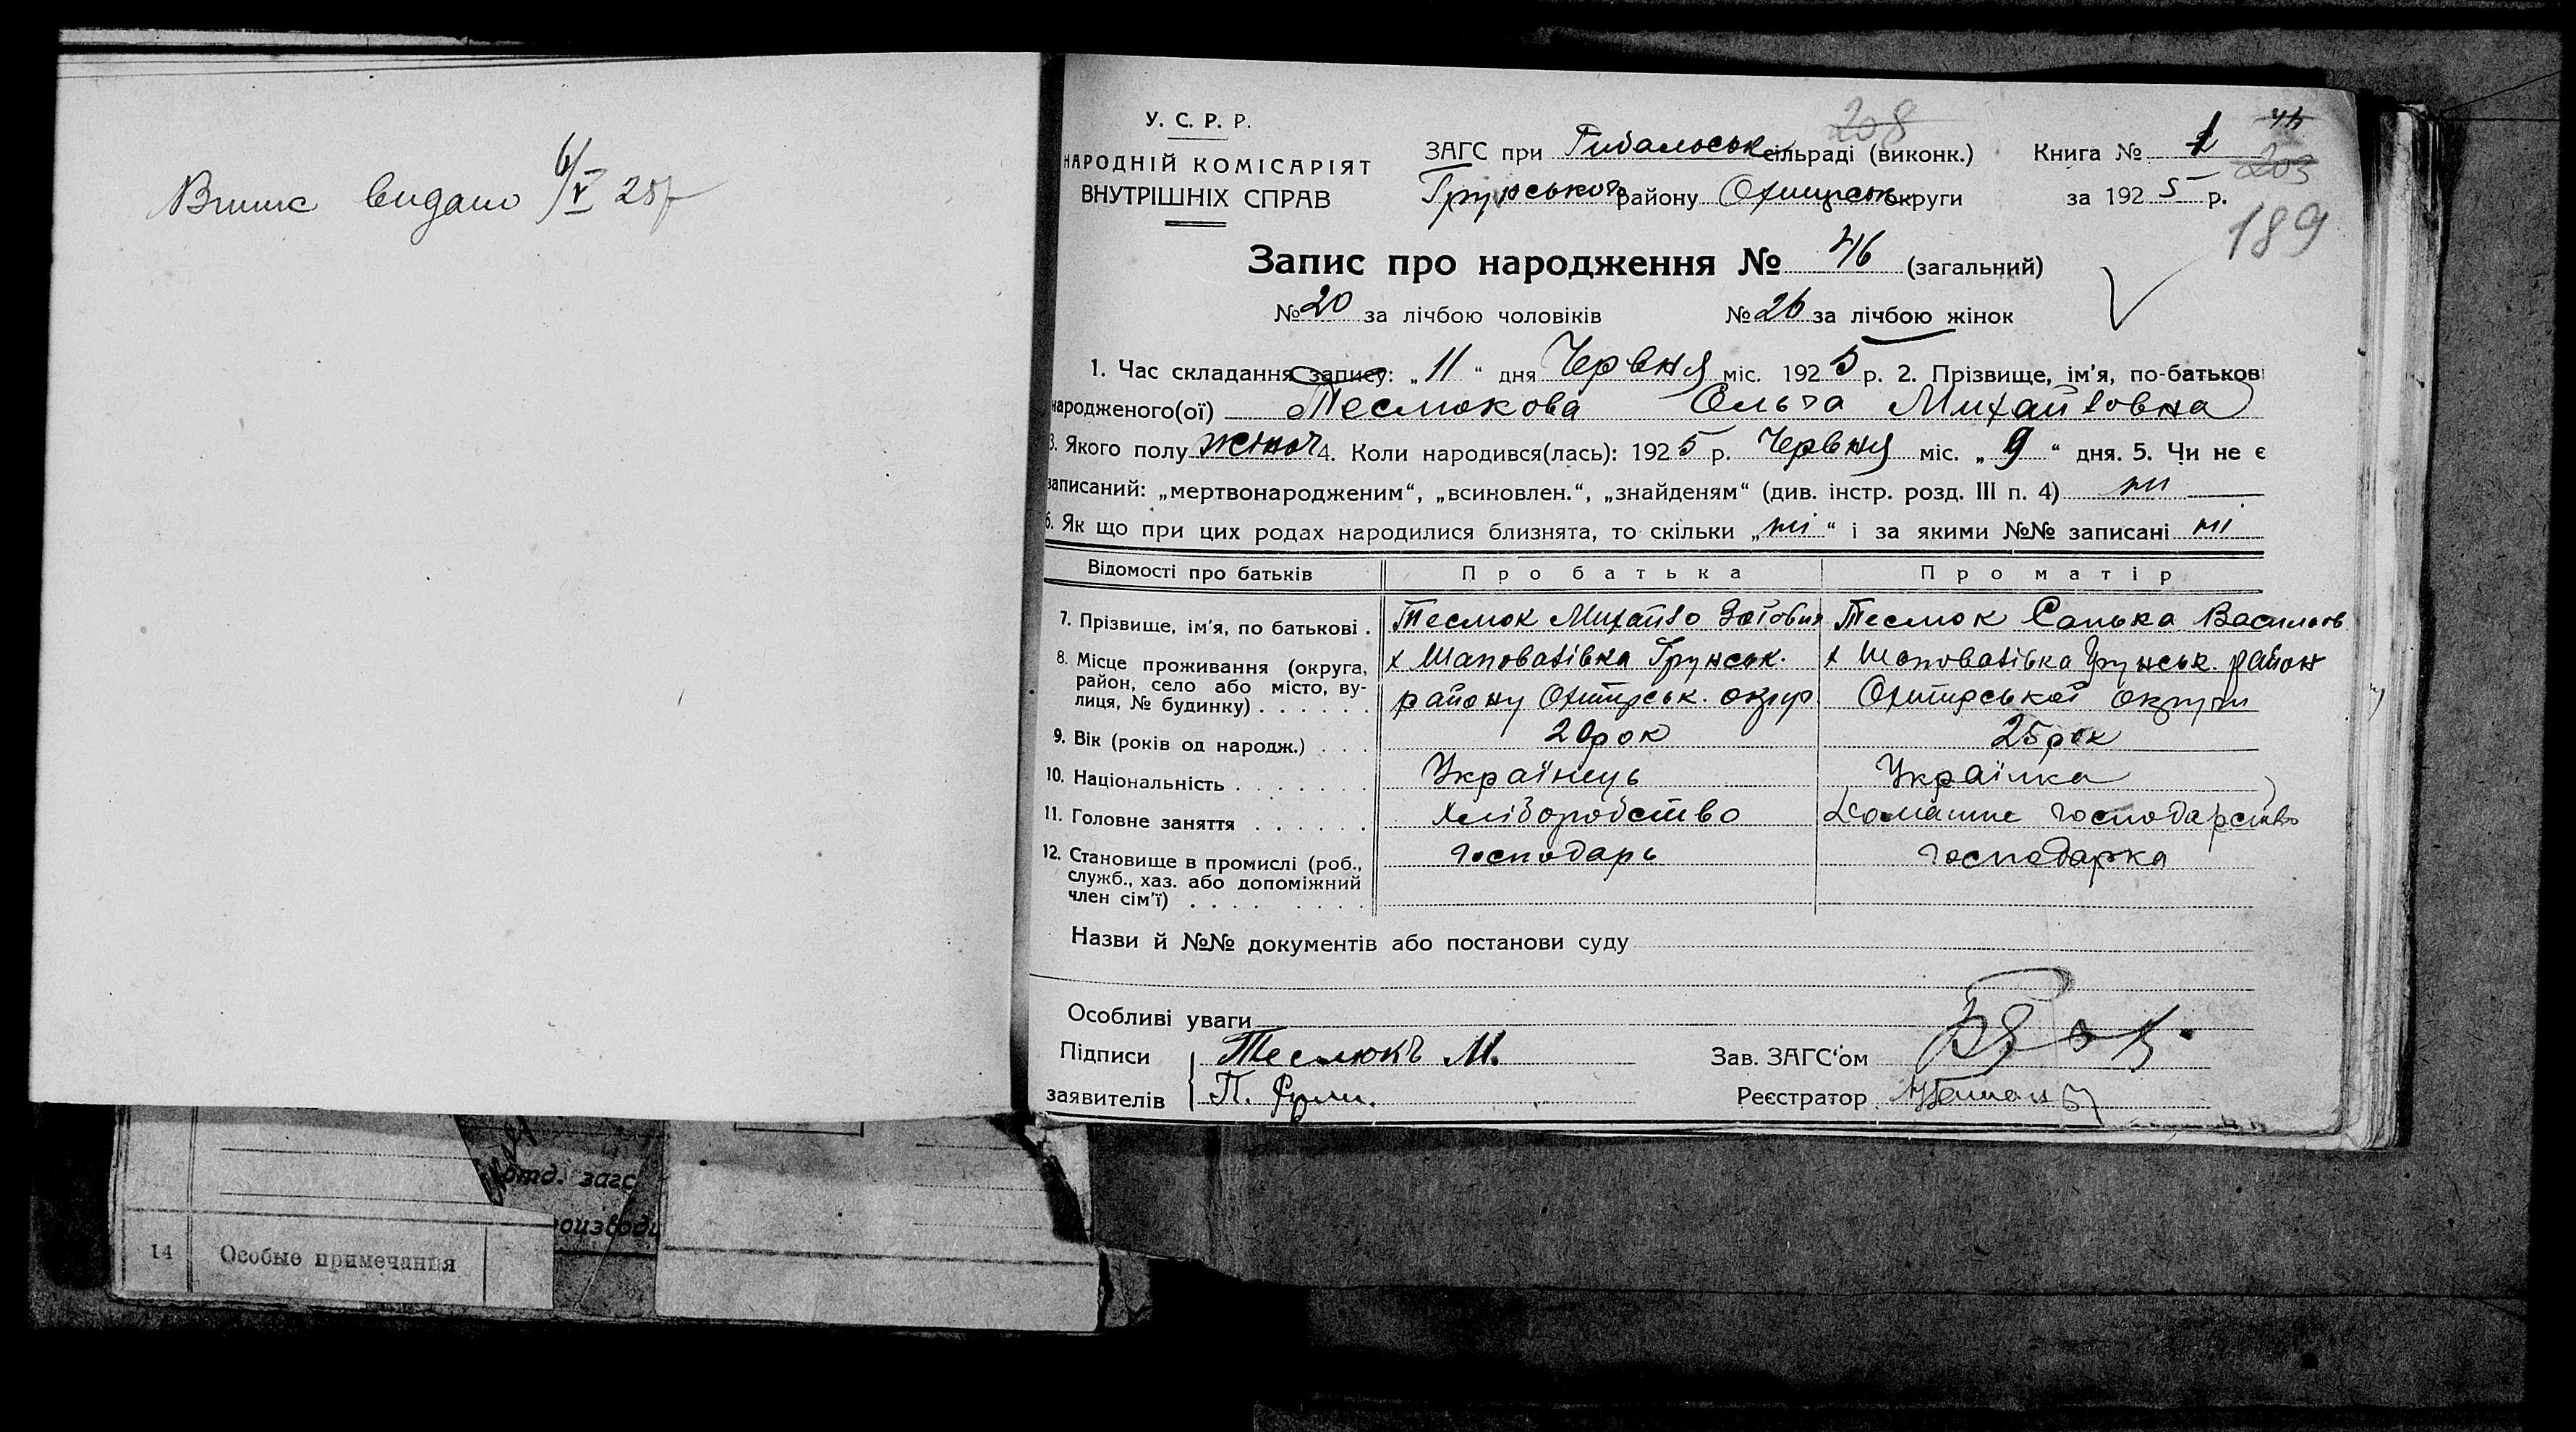 Витяг видано 6/V 25р
У. С. Р. Р.
НАРОДНІЙ КОМІСАРІЯТ
ВНУТРІШНІХ СПРАВ
208
ЗАГС при Рибальськ сільраді (виконк.)
Грунського району Охтирськ округи
Книга № 1
46
203
за 1925 р.
189
Запис про народження № 46 (загальний)
№ 20 за лічбою чоловіків № 26 за лічбою жінок
1. Час складання запису: „11“ дня Червня міс. 1925 р. 2. Прізвище, ім'я, по-батькові
народженого(ої) Теслюкова Ольга Михайловна
3. Якого полу жіноч 4. Коли народився(лась): 1925 р. Червня міс. „9“ дня. 5. Чи не є
записаний: „мертвонародженим“, „всиновлен.“, „знайденям“ (див. інстр. розд. III п. 4) ні
6. Як що при цих родах народилися близнята, то скільки „ні“ і за якими №№ записані ні
Відомості про батьків Про батька Про матір
7. Прізвище, ім'я, по батькові . Теслюк Михайло Зотович Теслюк Санька Васильов
8. Місце проживання (округа, район, село або місто, вулиця, № будинку) . . . . . .
х Шаповалівка Грунськ. х Шаповалівка Грунськ. район
району Охтирськ. округ Охтирської округи
9. Вік (років од народж.) . . . 20 рок 25 рок
10. Національність . . . . . . . Українець Українка
11. Головне заняття . . . . . . Хліборобство Домашнє господарство
12. Становище в промислі (роб., господарь господарка
служб., хаз. або допоміжний
член сім'ї) . . . . . . . .
Назви й №№ документів або постанови суду
Особливі уваги
Підписи Теслюкъ М. Зав. ЗАГС'ом
заявителів П. Реєстратор
отд. загс
14 Особые примечания